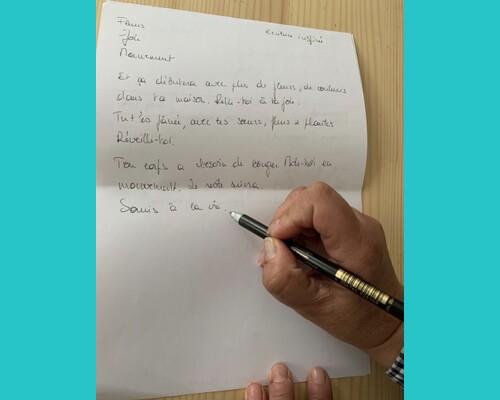 Fleurs
Écriture inspirée
Joie
Mouvement
Et ça débutera avec plus de fleurs, de couleurs
dans ta maison. Relie-toi à ta joie.
Tu t'es fânée, avec tes sœurs, fleurs & plantes
Réveille-toi.
Ton corps a besoin de bouger. Mets-toi en
mouvement. Le reste suivra.
Souris à la vie.